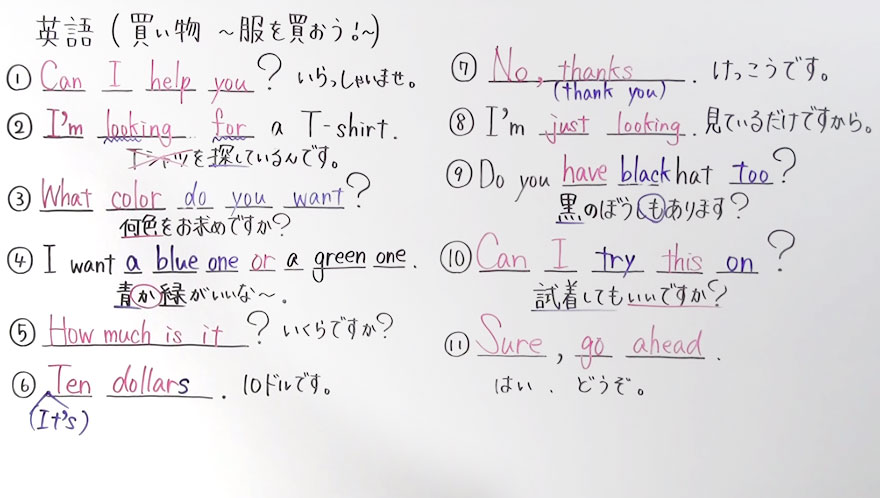 英語 (買い物 ～服を買おう!～)
① Can I help you? いらっしゃいませ。
② I'm looking for a T-shirt.
Tシャツを探しているんです。
③ What color do you want?
何色をお求めですか?
④ I want a blue one or a green one.
青か緑がいいな～。
⑤ How much is it? いくらですか?
⑥ Ten dollars. 10ドルです。
(It's)
⑦ No, thanks. けっこうです。
(thank you)
⑧ I'm just looking. 見ているだけですから。
⑨ Do you have black hat too?
黒のぼうしもあります?
⑩ Can I try this on?
試着してもいいですか?
⑪ Sure, go ahead.
はい. どうぞ。